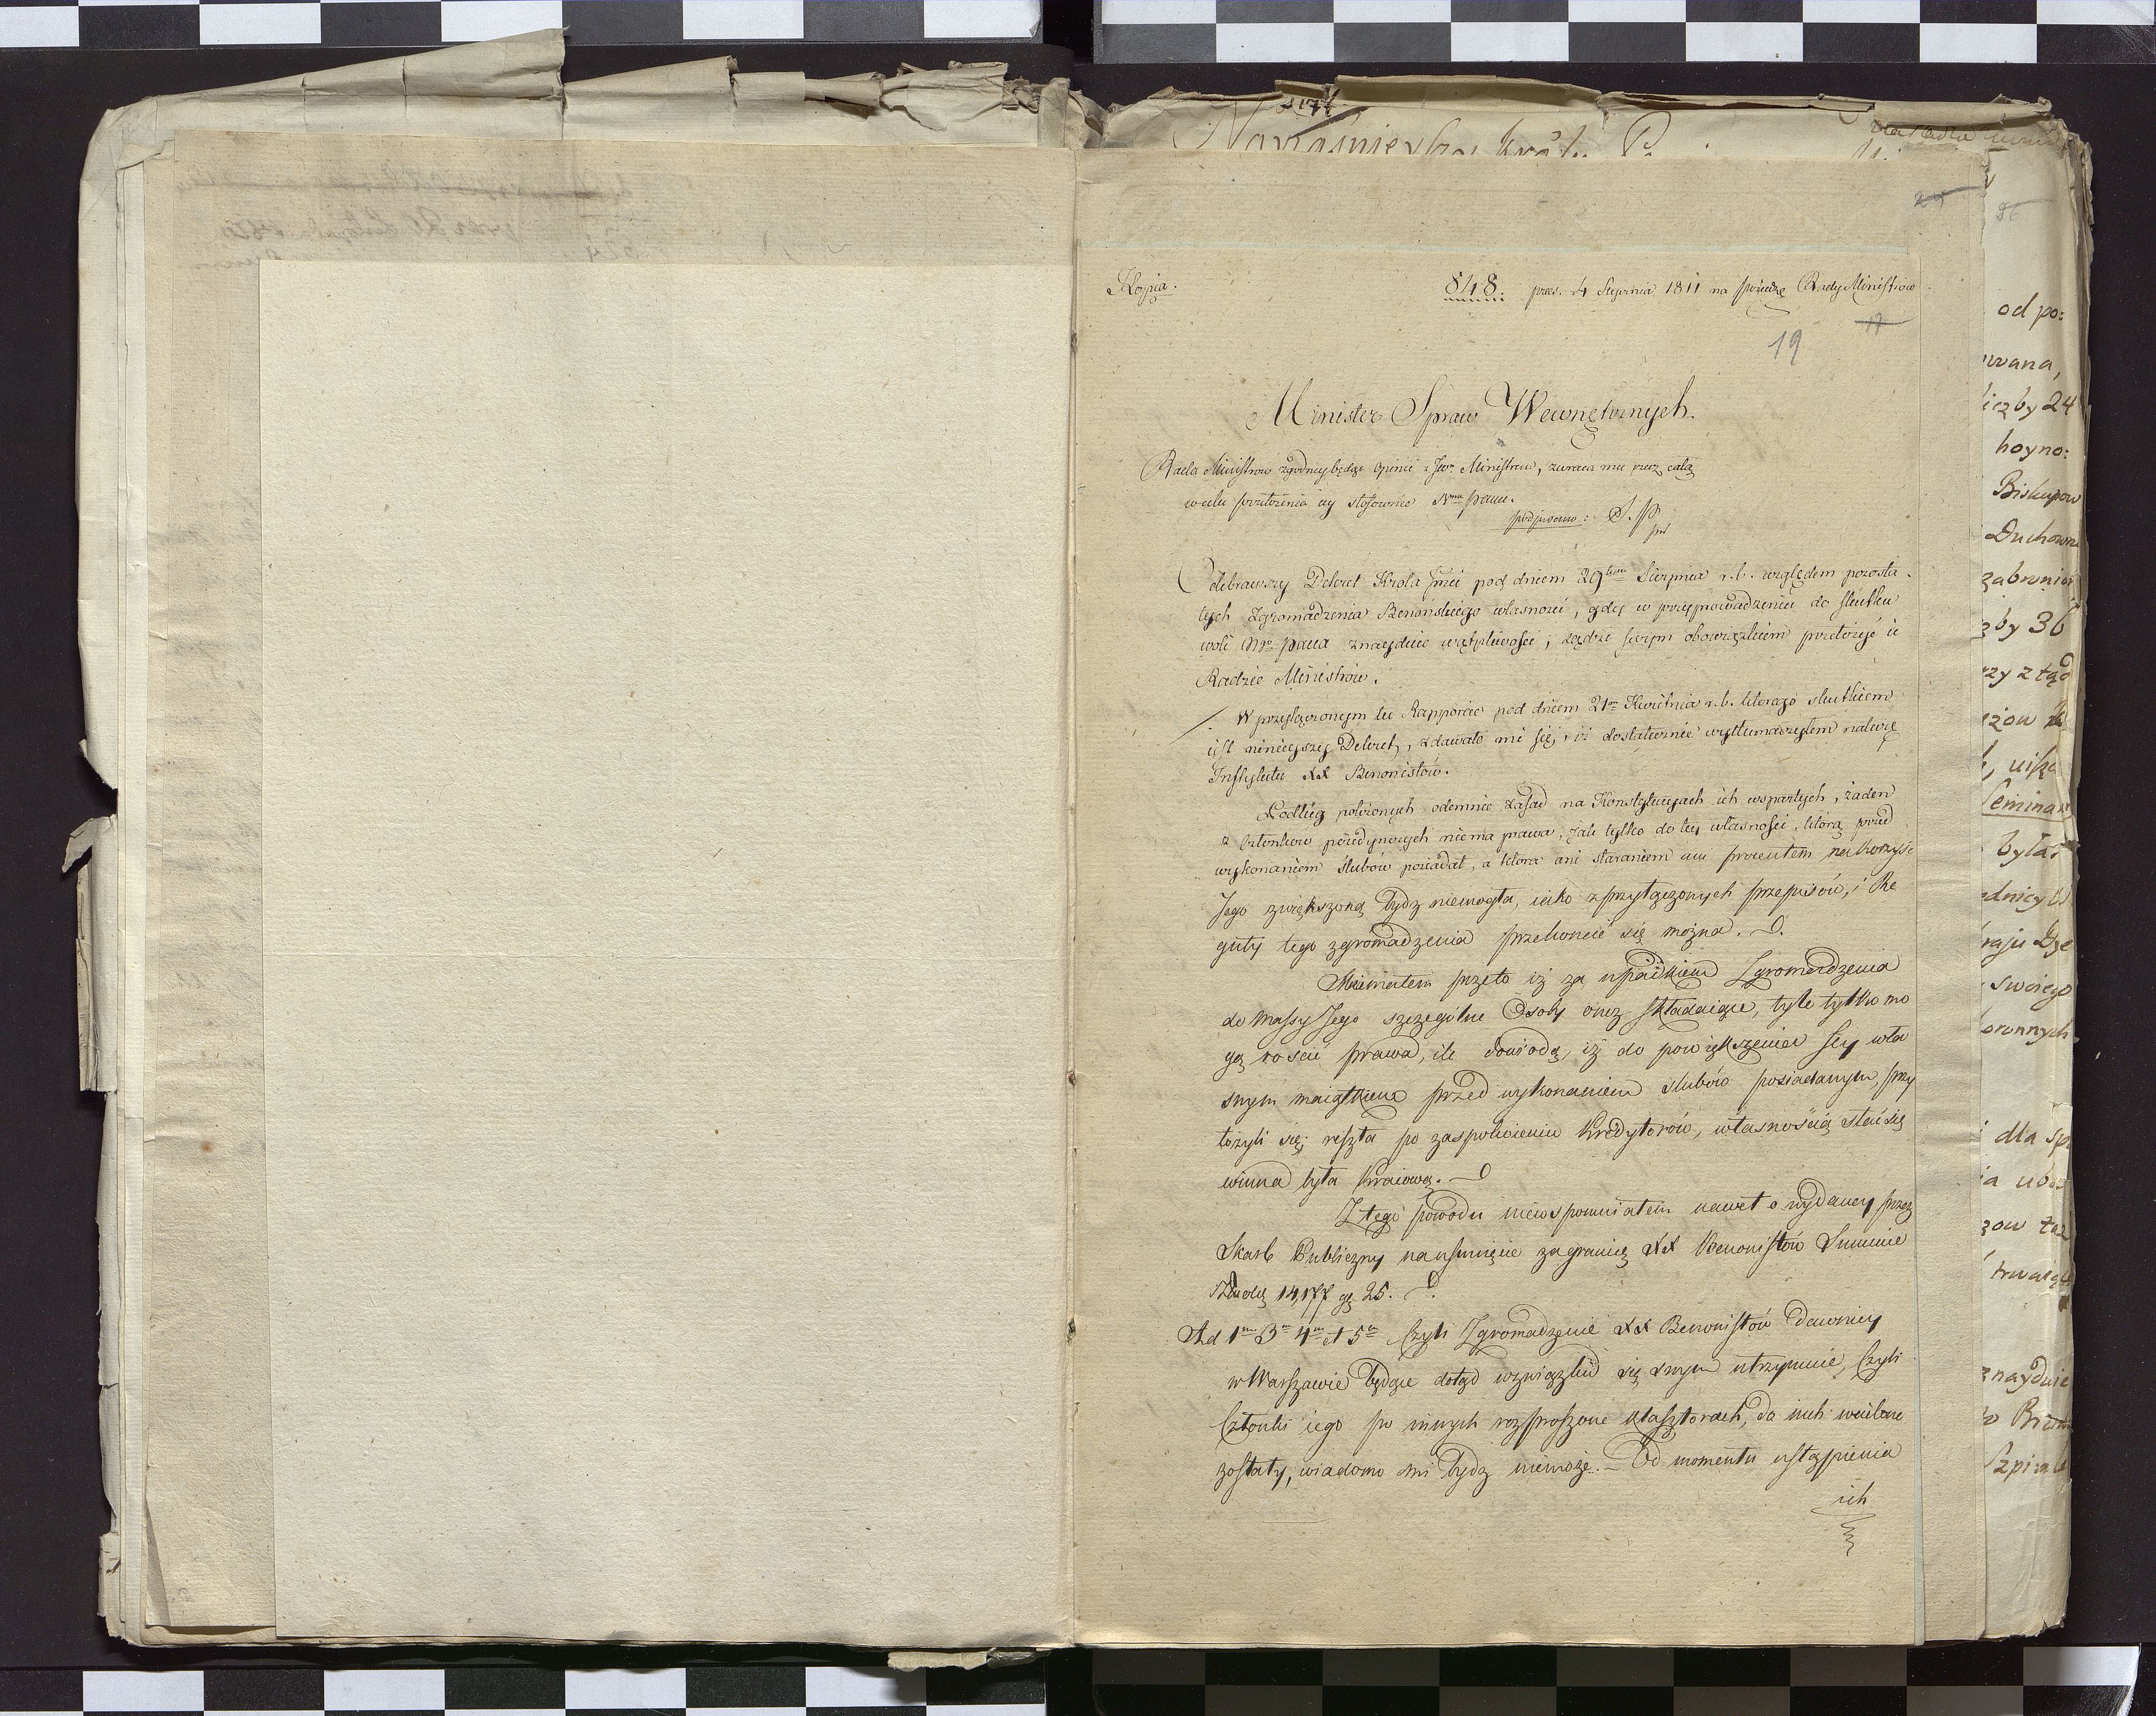 Kopia.
848. præs. 4 Stycznia 1811 na sessią Rady Ministrow
19
Minister Spraw Wewnętrznych.
Rada Ministrow zgodney będąc opinii z JW. Ministrem, zwraca mu rzecz całą
w celu przełożenia iey stosownie Nmu Panu.
podpisano: S. P.
Odebrawszy Dekret Krola Jmci pod dniem 29tym Sierpnia r.b. względem pozosta-
łych Zgromadzenia Benońskiego własności, gdy w przyprowadzeniu do skutku
woli Ngo Pana znayduie wątpliwości, sądzę swym obowiązkiem przełożyć ie
Radzie Ministrów.
W przyłączonym tu Rapporcie pod dniem 21m Kwietnia r.b. którego skutkiem
iest ninieyszy Dekret, zdawało mi się, iż dostatecznie wytłumaczyłem naturę
Instytutu XX Benonistów.
Podług położonych odemnie zasad na Konstytucyach ich wspartych, żaden
z Członków poiedynczych niema prawa, jak tylko do tey własności, którą przed
wykonaniem ślubów posiadał, a która ani staraniem ani procentem na korzyść
Jego zwiększoną bydz niemogła, iako z przyłączonych przepisów, i Re
guły tego zgromadzenia przekonać się można.
Mniemałem przeto iż za upadkiem Zgromadzenia
do Massy Jego szczegolne Osoby onez składaiące, tyle tylko mo
gą rościć prawa, ile dowiodą, iż do powiększenia Jey wła
snym maiątkiem przed wykonaniem slubów posiadanym, przy
łożyli się; reszta po zaspokoieniu Kredytorów, własnością stać się
winna była Kraiową.
Z tego powodu niewspomniałem nawet o wydaney przez
Skarb Publiczny na usunięcie zagranicę XX Benonistów Summie
14,177 gr 25.
Ad 1m 3m 4m et 5m Czyli Zgromadzenie XX Benonistów dawniey
w Warszawie będące dotąd w związku się swym utrzymuie, Czyli
Członki iego po innych rozproszone klasztorach, do nich wcielone
zostały, wiadomo mi bydz niemoże. – Od momentu ustąpienia
ich
od po:
wana,
iczby 24
hoyno:
Biskupow
Duchowne
zby 36
swoiego
była:
dla sp
znayduie